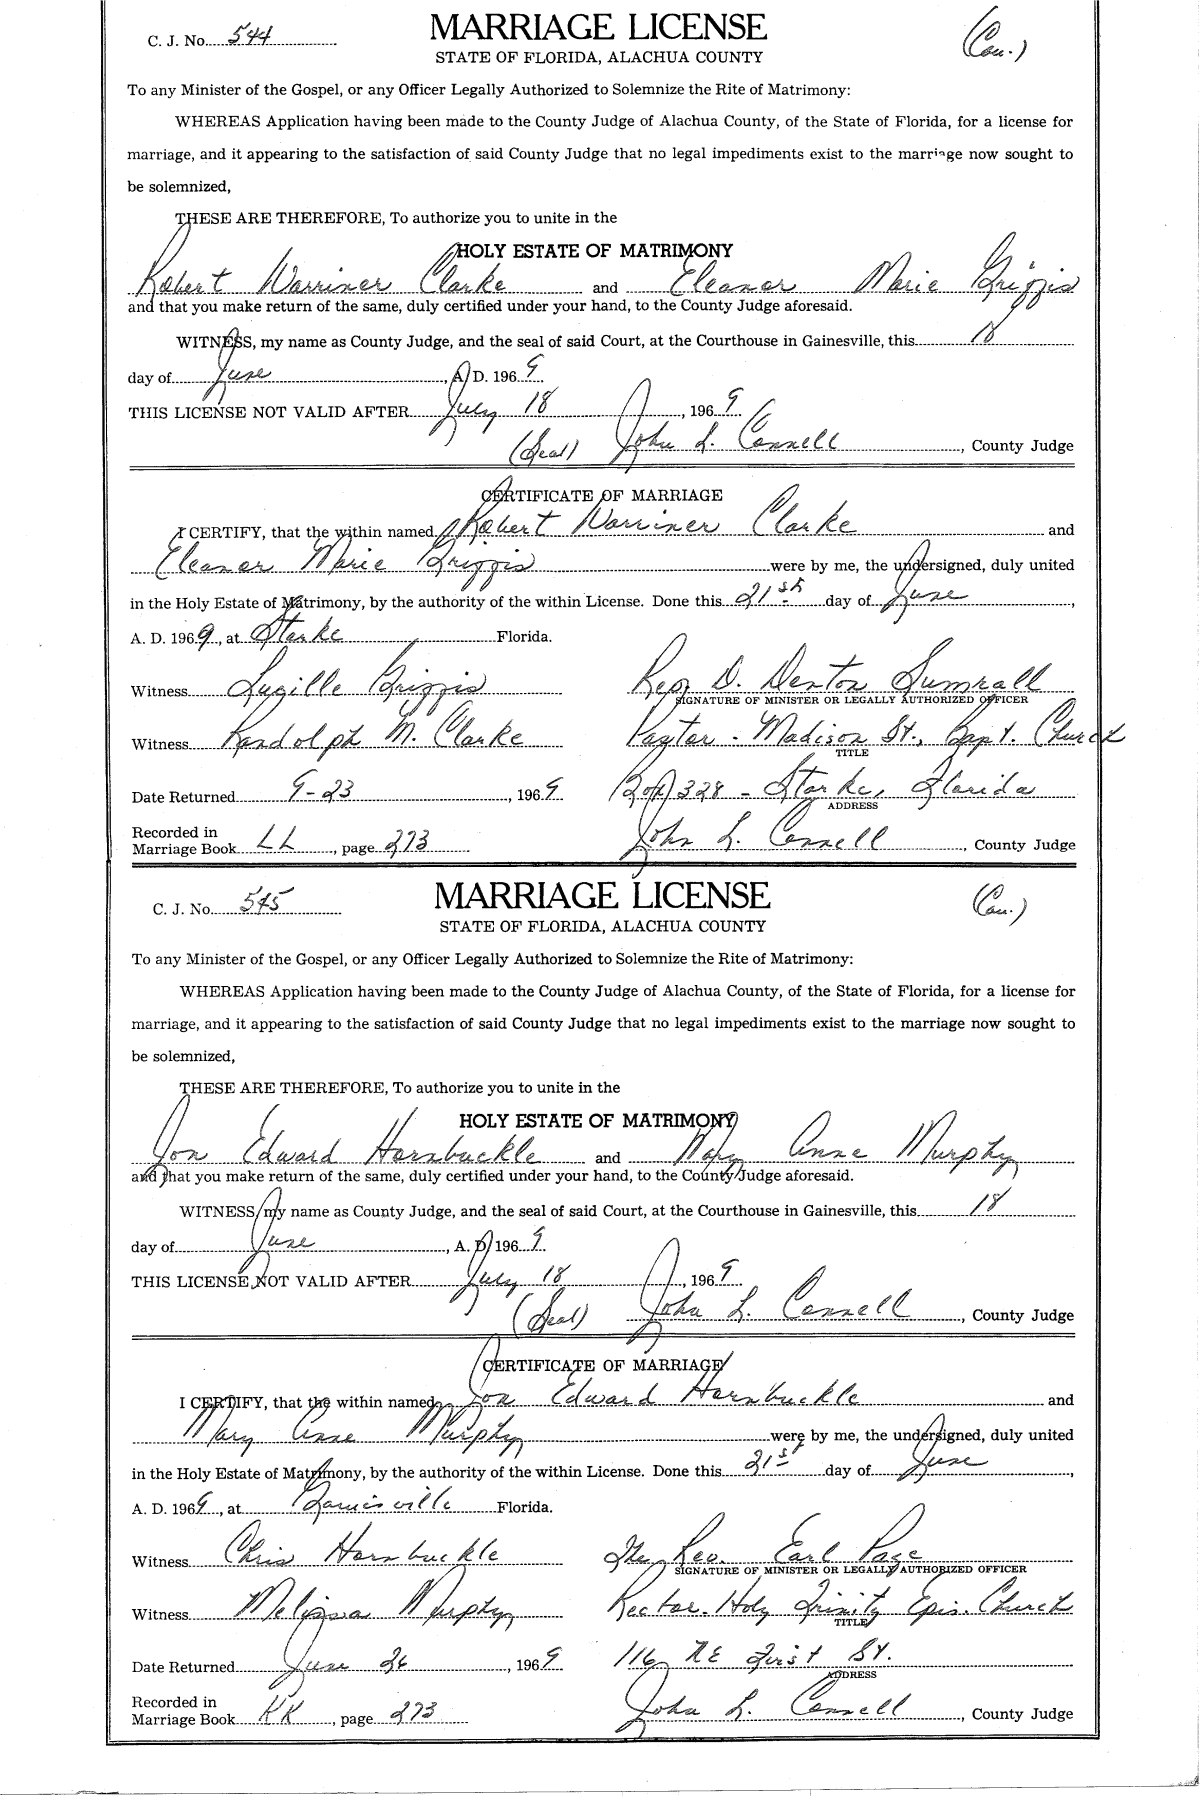 C. J. No. 544
MARRIAGE LICENSE
(Cau.)
STATE OF FLORIDA, ALACHUA COUNTY
To any Minister of the Gospel, or any Officer Legally Authorized to Solemnize the Rite of Matrimony:
WHEREAS Application having been made to the County Judge of Alachua County, of the State of Florida, for a license for
marriage, and it appearing to the satisfaction of said County Judge that no legal impediments exist to the marriage now sought to
be solemnized,
THESE ARE THEREFORE, To authorize you to unite in the
HOLY ESTATE OF MATRIMONY
Robert Warriner Clarke and Eleanor Marie Griggis
and that you make return of the same, duly certified under your hand, to the County Judge aforesaid.
WITNESS, my name as County Judge, and the seal of said Court, at the Courthouse in Gainesville, this 18
day of June, A. D. 1969
THIS LICENSE NOT VALID AFTER July 18, 1969
(Seal) John L. Connell, County Judge
CERTIFICATE OF MARRIAGE
I CERTIFY, that the within named Robert Warriner Clarke and
Eleanor Marie Griggis were by me, the undersigned, duly united
in the Holy Estate of Matrimony, by the authority of the within License. Done this 21st day of June,
A. D. 1969, at Starke Florida.
Witness Lucille Griggis D. Denton Sumrall
SIGNATURE OF MINISTER OR LEGALLY AUTHORIZED OFFICER
Witness Randolph M. Clarke Pastor - Madison St., Bapt. Church
TITLE
Date Returned 9-23, 1969 Box 328 - Starke, Florida
ADDRESS
Recorded in
Marriage Book LL, page 273 John L. Connell, County Judge
C. J. No. 545
MARRIAGE LICENSE
(Cau.)
STATE OF FLORIDA, ALACHUA COUNTY
To any Minister of the Gospel, or any Officer Legally Authorized to Solemnize the Rite of Matrimony:
WHEREAS Application having been made to the County Judge of Alachua County, of the State of Florida, for a license for
marriage, and it appearing to the satisfaction of said County Judge that no legal impediments exist to the marriage now sought to
be solemnized,
THESE ARE THEREFORE, To authorize you to unite in the
HOLY ESTATE OF MATRIMONY
Jon Edward Hornbuckle and Mary Anne Murphy
and that you make return of the same, duly certified under your hand, to the County Judge aforesaid.
WITNESS, my name as County Judge, and the seal of said Court, at the Courthouse in Gainesville, this 18
day of June, A. D. 1969
THIS LICENSE NOT VALID AFTER July 18, 1969
(Seal) John L. Connell, County Judge
CERTIFICATE OF MARRIAGE
I CERTIFY, that the within named Jon Edward Hornbuckle and
Mary Anne Murphy were by me, the undersigned, duly united
in the Holy Estate of Matrimony, by the authority of the within License. Done this 21st day of June,
A. D. 1969, at Gainesville Florida.
Witness Chris Hornbuckle The Rev. Earl Page
SIGNATURE OF MINISTER OR LEGALLY AUTHORIZED OFFICER
Witness Melissa Murphy Rector - Holy Trinity Epis. Church
TITLE
Date Returned June 26, 1969 116 NE First St.
ADDRESS
Recorded in
Marriage Book KK, page 273 John L. Connell, County Judge